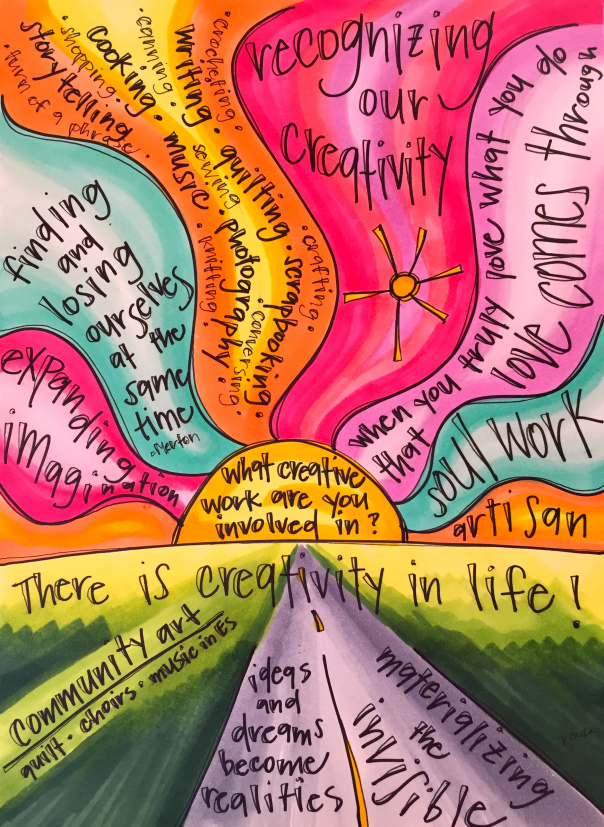 recognizing
our
creativity
· crocheting ·
· crafting ·
writing · quilting · scrapbooking ·
· canning ·
sewing
· conversing ·
cooking · music · photography ·
· shopping ·
storytelling
· knitting ·
· turn of a phrase ·
when you truly love what you do
that love comes through
finding
and
losing
ourselves
at the
same
time
· Merton
expanding
imagination
soul work
artisan
what creative
work are you
involved in?
There is creativity in life!
community art
quilt · chairs · music in Es
ideas
and
dreams
become
realities
materializing
the
invisible